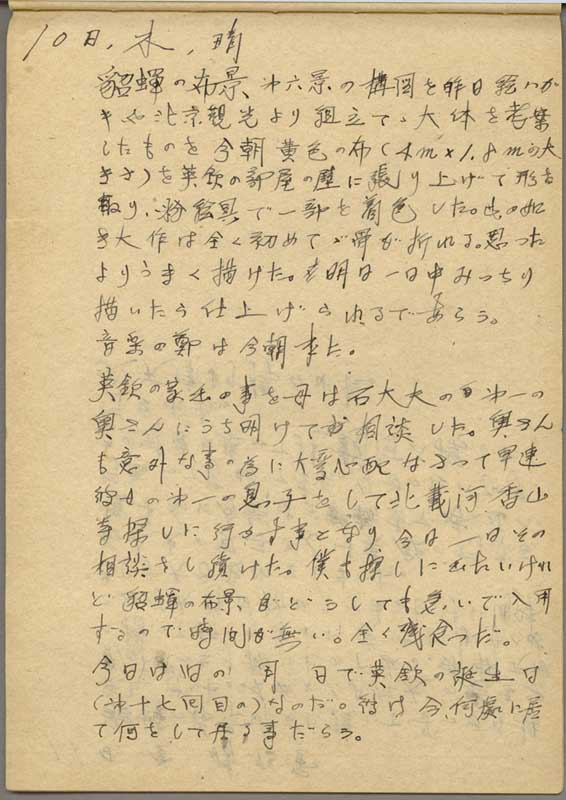 10日、木、晴
貂蝉の布景 第六景の構図を昨日絵ハガ
キや北京観光より組立て、大体を考案
したものを今朝黄色の布(4m×1.8mの大
きさ)を英欽の部屋の壁に張り上げて形を
取り、粉絵具で一部を着色した。此の如
き大作は全く初めてで骨が折れる。思った
よりうまく描けた。明日一日中みっちり
描いたら仕上げられるであらう。
音楽の鄭は今朝来た。
英欽の家出の事を母は石大夫の 第一の
奥さんにうち明けて 相談した。奥さん
も意外な事の為に大変心配なさって早速
彼女の第一の息子をして北戴河、香山
等探しに行かす事となり 今日一日その
相談をし続けた。僕も探しに出たいけれ
ど貂蝉の布景がどうしても急いで入用
するので時間が無い。全く残念だ。
今日は旧の 月 日で英欽の誕生日
(第十七回目の)なのだ。彼は今、何処に居
て何をして居る事だらう。